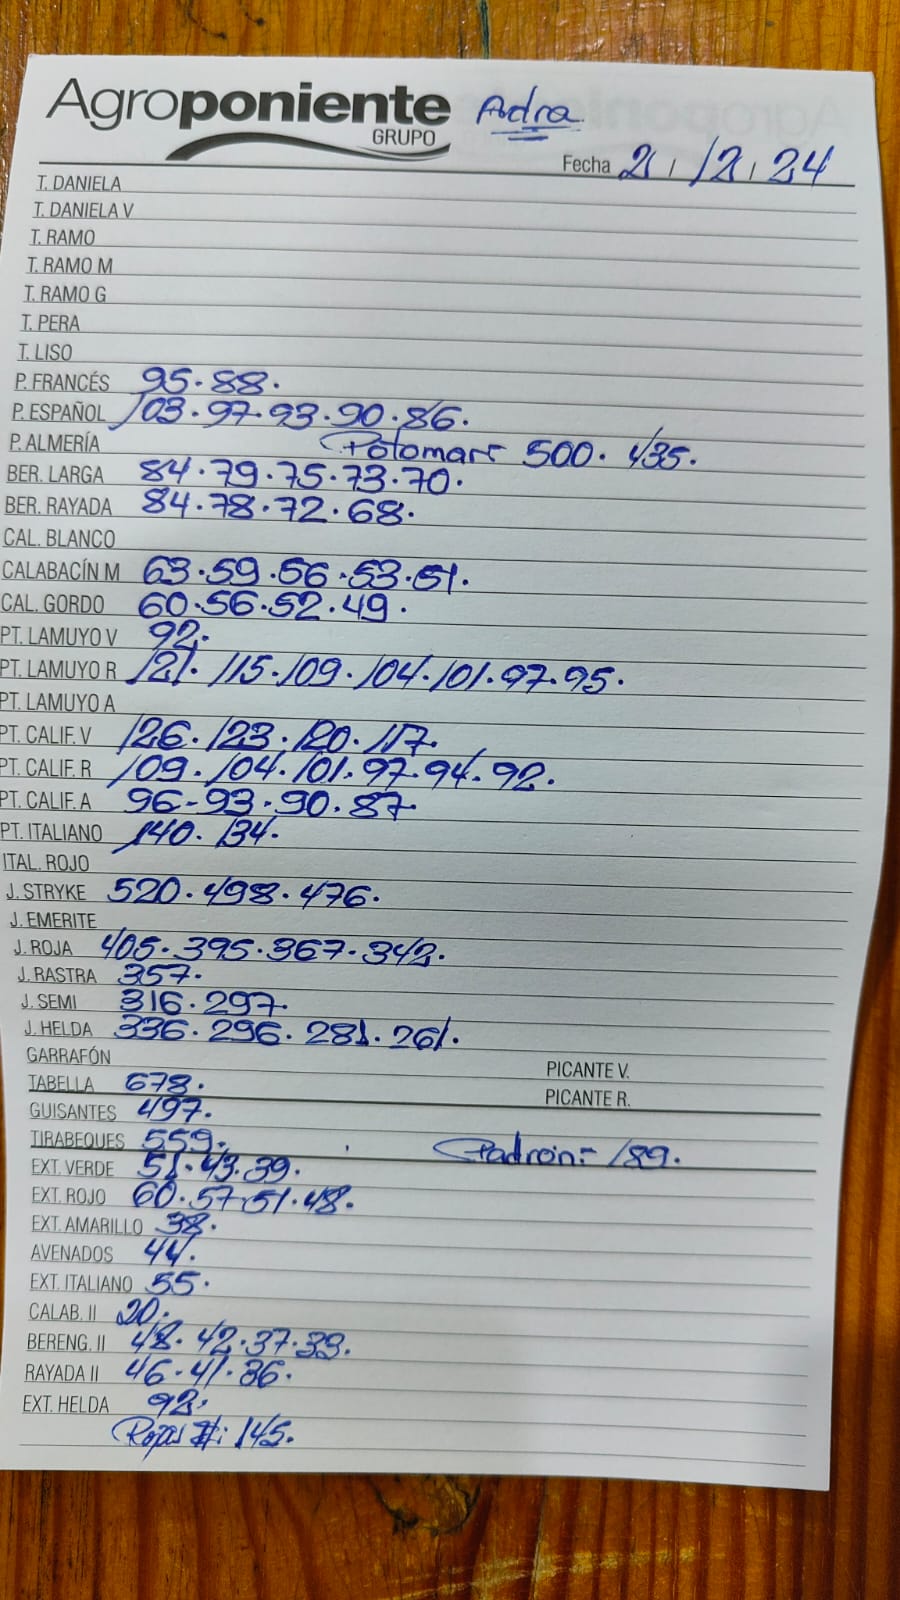 Agroponiente Adra
GRUPO
Fecha 21/12/24
T. DANIELA
T. DANIELA V
T. RAMO
T. RAMO M
T. RAMO G
T. PERA
T. LISO
P. FRANCÉS 95.88.
P. ESPAÑOL 103.97.93.90.86.
P. ALMERÍA 500. 435.
BER. LARGA 84.79.75.73.70.
BER. RAYADA 84.78.72.68.
CAL. BLANCO
CALABACÍN M 63.59.56.53.51.
CAL. GORDO 60.56.52.49.
PT. LAMUYO V 92.
PT. LAMUYO R 121. 115.109.104.101.97.95.
PT. LAMUYO A
PT. CALIF. V 126.123.120.117.
PT. CALIF. R 109.104.101.97.94.92.
PT. CALIF. A 96-93.90.87
PT. ITALIANO 140. 134.
ITAL. ROJO
J. STRYKE 520.498.476.
J. EMERITE
J. ROJA 405.395.367.342.
J. RASTRA 357.
J. SEMI 316.297.
J. HELDA 336.296.281.261.
GARRAFÓN PICANTE V.
TABELLA 678. PICANTE R.
GUISANTES 497.
TIRABEQUES 559. Padron:- 189.
EXT. VERDE 51.43.39.
EXT. ROJO 60.57.51.48.
EXT. AMARILLO 38.
AVENADOS 44.
EXT. ITALIANO 55.
CALAB. II 20.
BERENG. II 48.42.37.33.
RAYADA II 46.41.36.
EXT. HELDA 92.
145.